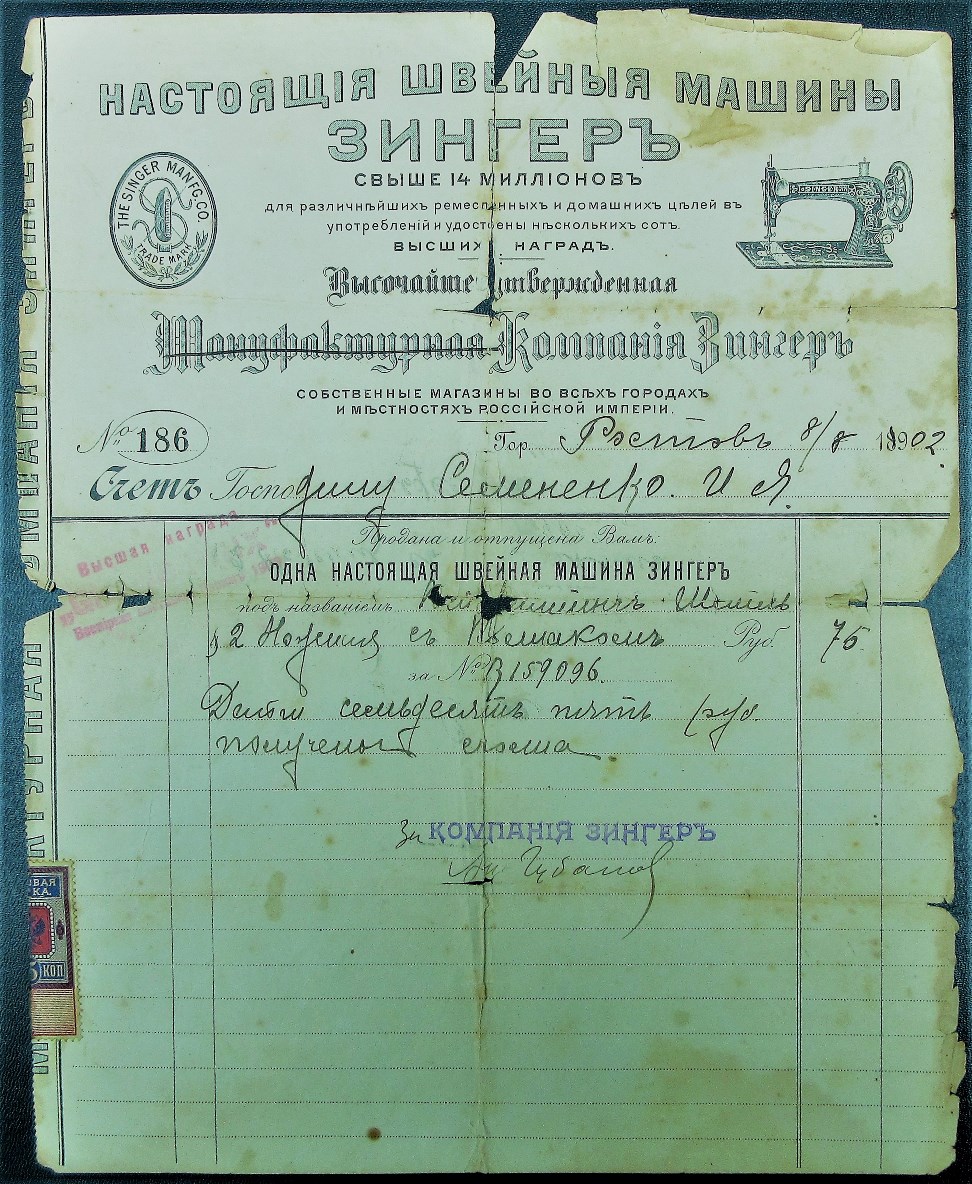 НАСТОЯЩІЯ ШВЕЙНЫЯ МАШИНЫ
ЗИНГЕРЪ
СВЫШЕ 14 МИЛЛІОНОВЪ
для различнѣйшихъ ремесленныхъ и домашнихъ цѣлей въ
употребленій и удостоены нѣсколькихъ сотъ
ВЫСШИХЪ НАГРАДЪ.
THE SINGER MANFG. CO.
TRADE MARK
Высочайше утвержденная
Мануфактурная Компанія Зингеръ
СОБСТВЕННЫЕ МАГАЗИНЫ ВО ВСѢХЪ ГОРОДАХЪ
И МѢСТНОСТЯХЪ РОССІЙСКОЙ ИМПЕРІИ.
№ 186
Гор. Ростовъ 8/8 1902
Счетъ Господину Семененко. И Я.
Высшая награда
Продана и отпущена Вамъ:
ОДНА НАСТОЯЩАЯ ШВЕЙНАЯ МАШИНА ЗИНГЕРЪ
подъ названіемъ
2 Ножная съ Колпакомъ Руб. 75
за № 159096.
Деньги семьдесятъ пять руб.
получены сполна
За КОМПАНІЯ ЗИНГЕРЪ
Губанов
5 КОП